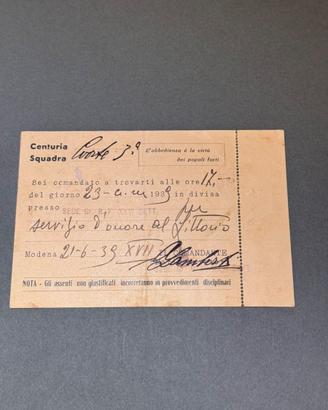 Centuria
Squadra Coorte - 3ª
L'obbedienza è la virtù
dei popoli forti
Sei comandato a trovarti alle ore 17,-
del giorno 23-6- 1939 in divisa
presso SEDE
servizio d'onore al Littorio
Modena 21-6-39 XVII COMANDANTE
NOTA - Gli assenti non giustificati incorreranno in provvedimenti disciplinari